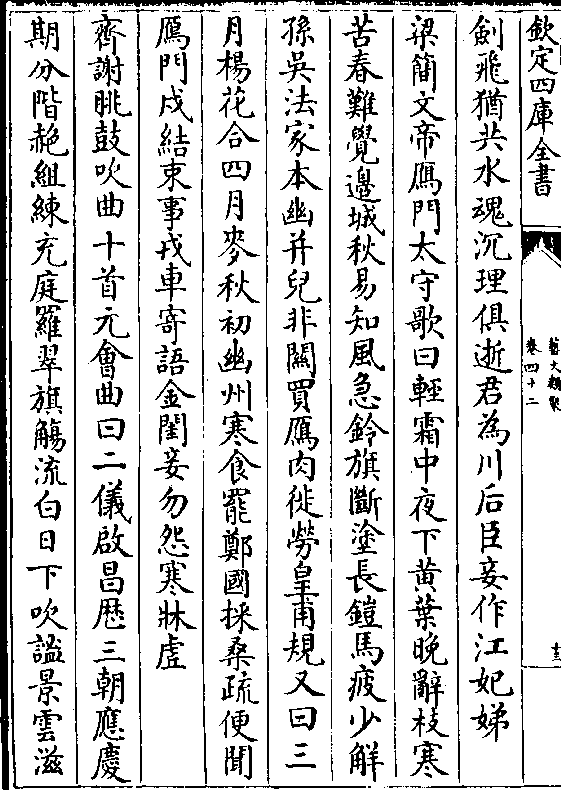 欽定四庫全書
藝文類聚
卷四十二
十三
劍飛猶共水魂沉理俱逝君為川后臣妾作江妃娣
梁簡文帝鴈門太守歌曰輕霜中夜下黃葉晚辭枝寒
苦春難覺邊城秋易知風急鈴旗斷塗長鎧馬疲少解
孫吳法家本幽并兒非關買鴈肉徒勞皇甫規又曰三
月楊花合四月麥秋初幽州寒食罷鄭國採桑疏便聞
鴈門戍結束事戎車寄語金閨妾勿怨寒牀虛
齊謝眺鼓吹曲十首元會曲曰二儀啟昌厯三朝應慶
期分階赩組練充庭羅翠旗觴流白日下吹謐景雲滋